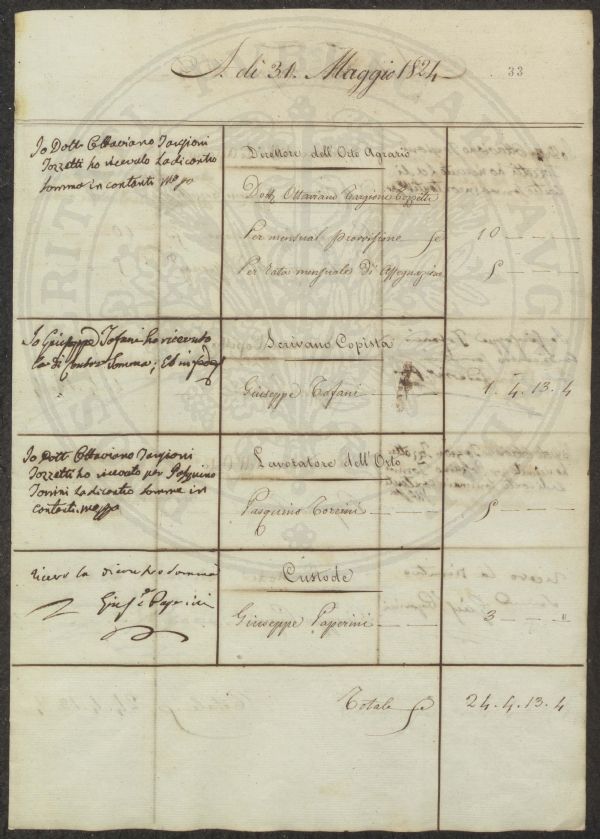 A di 31. Maggio 1824
33
Io Dott: Ottaviano Targioni
Tozzetti ho ricevuto la di contro
somma in contanti
Direttore dell'Orto Agrario
Dott. Ottaviano Targioni Tozzetti
Per mensual provvisione 10 - - -
Per rata mensuale di Assegnazione 5 - - -
Io Giuseppe Tofani ho ricevuto
la di Contro Somma; Ed in fede
Scrivano Copista
Giuseppe Tofani 1. 4. 13. 4
Io Dott: Ottaviano Targioni
Tozzetti ho ricevuto per Pasquino
Torrini la di contro somma in
contanti
Lavoratore dell'Orto
Pasquino Torrini 5 - - -
ricevo la di contro somma
Gius.e Paperini
Custode
Giuseppe Paperini 3 - - - "
Totale 24. 4. 13. 4